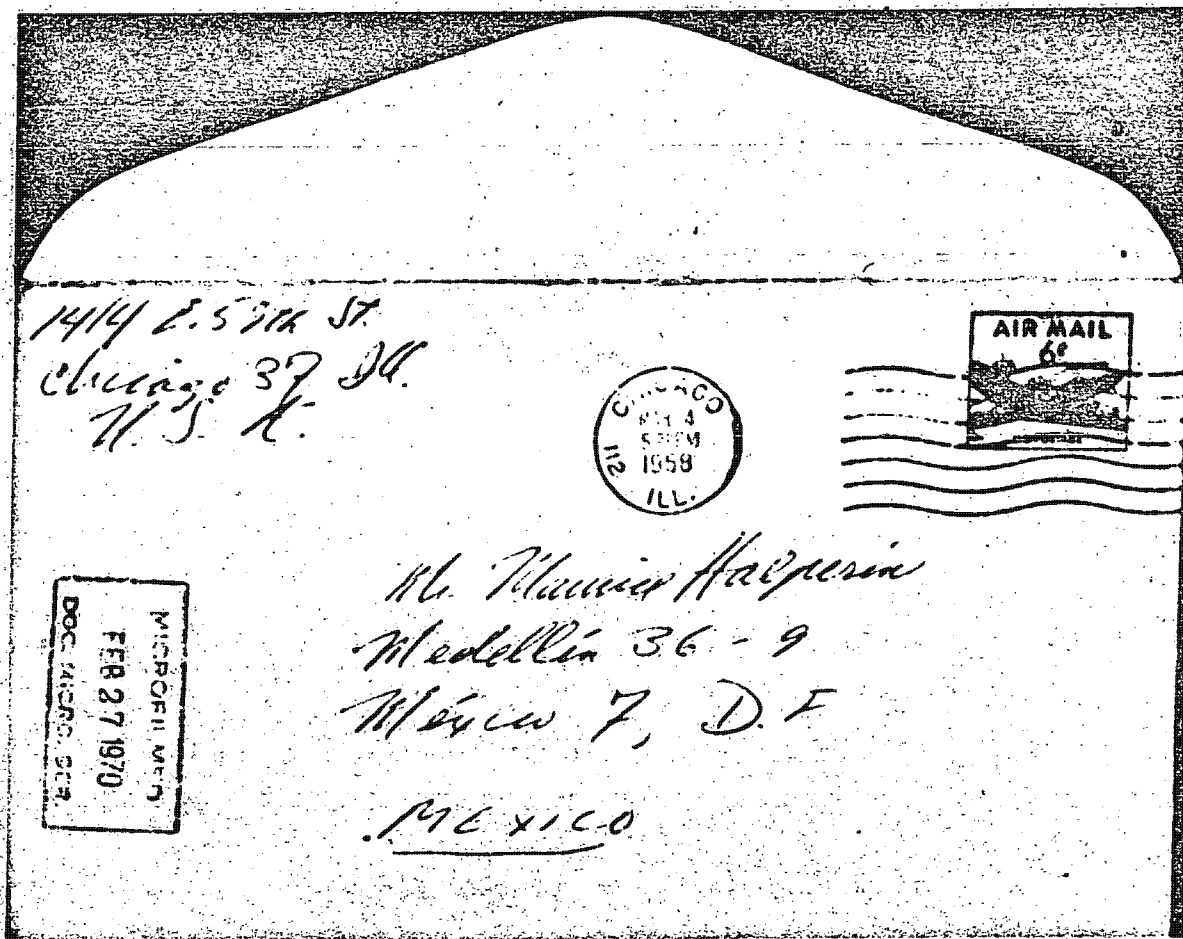 1414 E. 59th St.
Chicago 37 Ill.
U. S. A.
AIR MAIL
6¢
CHICAGO
4
PM
1958
ILL.
112
Mr. Maurice Halperin
Medellín 36 - 9
México 7, D. F
MEXICO
MICROFILMED
FEB 27 1970
DOC. MICRO. SER.